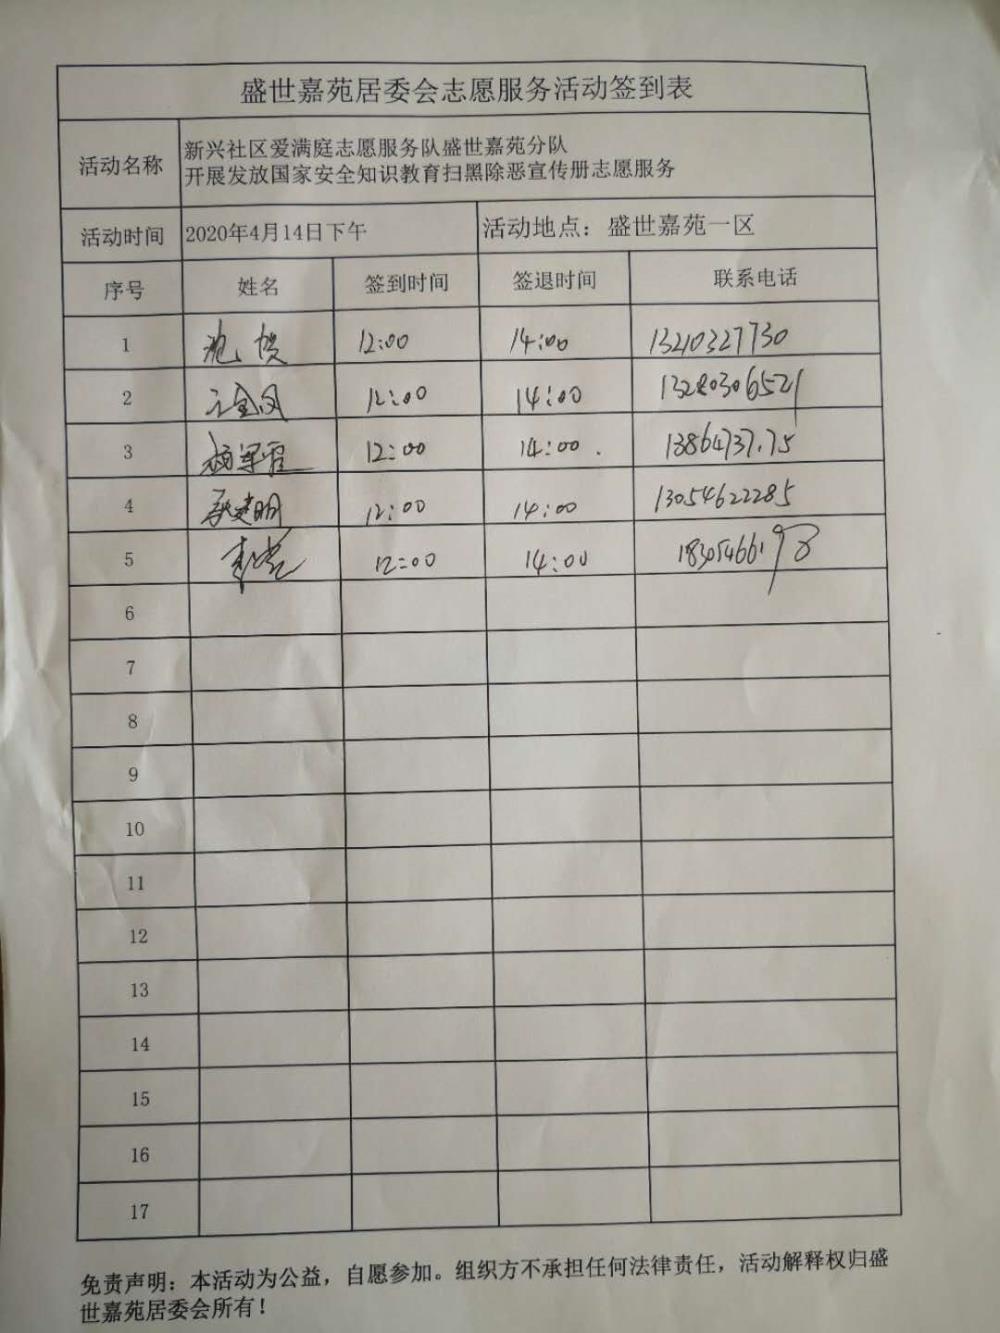 盛世嘉苑居委会志愿服务活动签到表
活动名称
新兴社区爱满庭志愿服务队盛世嘉苑分队
开展发放国家安全知识教育扫黑除恶宣传册志愿服务
活动时间 2020年4月14日下午 活动地点：盛世嘉苑一区
序号 姓名 签到时间 签退时间 联系电话
1 12:00 14:00 13210327730
2 12:00 14:00
3 12:00 14:00
4 12:00 14:00 13054622285
5 12:00 14:00
6
7
8
9
10
11
12
13
14
15
16
17
免责声明：本活动为公益，自愿参加。组织方不承担任何法律责任，活动解释权归盛
世嘉苑居委会所有！